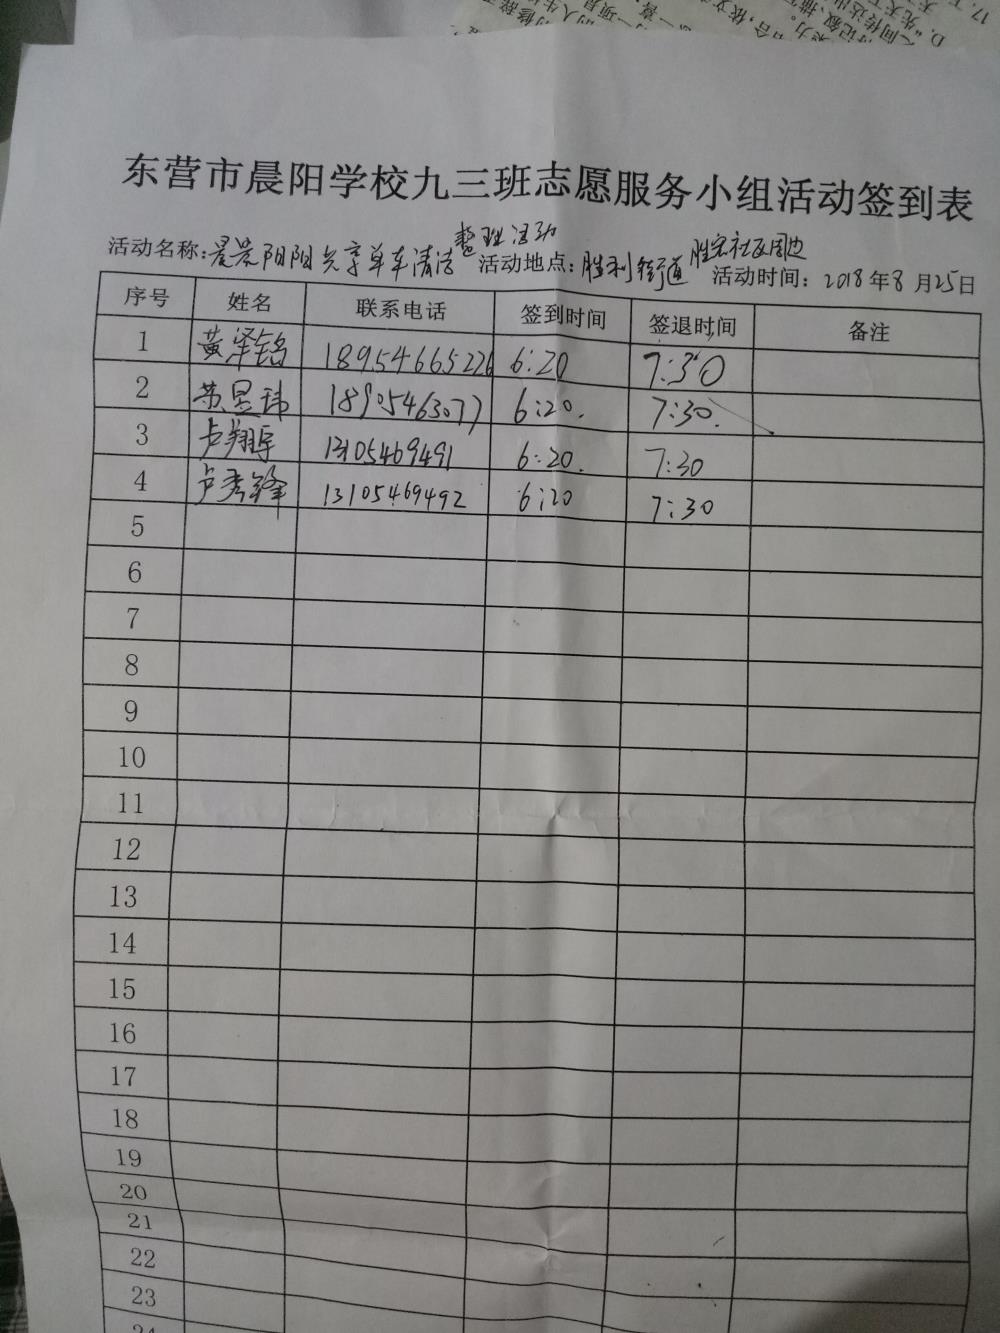 东营市晨阳学校九三班志愿服务小组活动签到表
活动名称:晨晨阳阳共享单车清洁整理活动 活动地点:胜利街道胜宏社区周边 活动时间:2018年8月25日
序号 姓名 联系电话 签到时间 签退时间 备注
1 黄泽铭 18954665226 6:20 7:30
2 苏昱玮 18905463077 6:20. 7:30.
3 卢翔宇 13105469491 6:20. 7:30
4 卢秀锋 13105469492 6:20 7:30
5
6
7
8
9
10
11
12
13
14
15
16
17
18
19
20
21
22
23
24